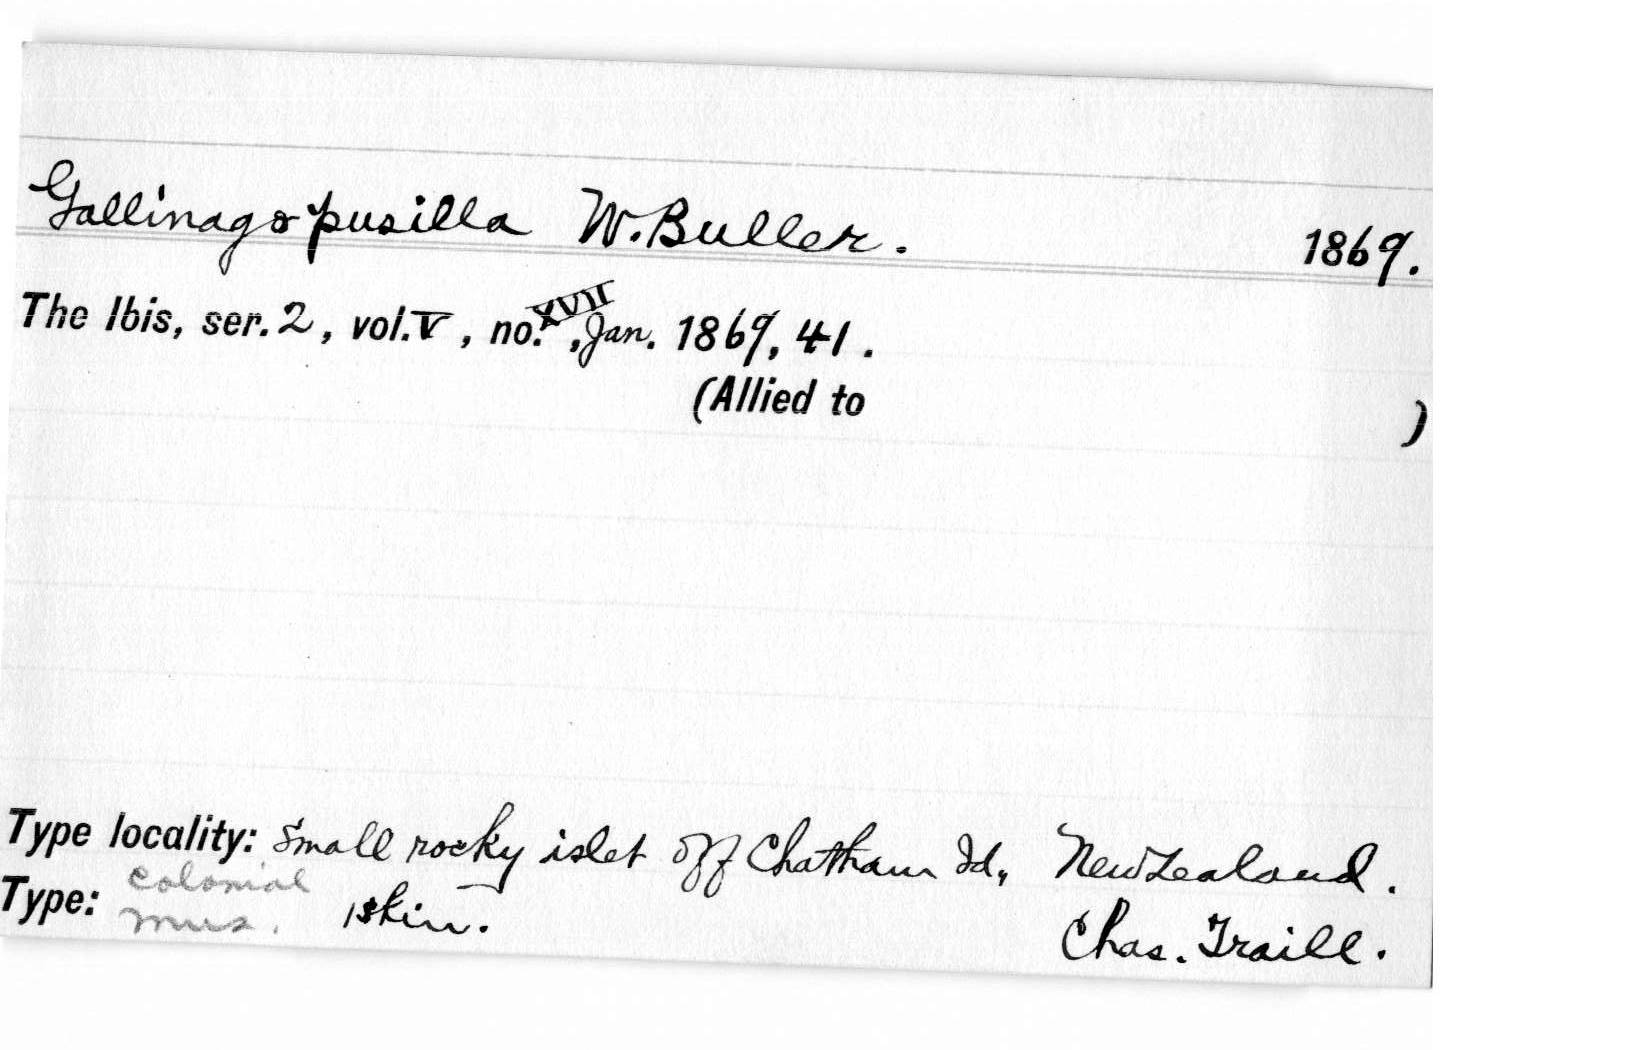 Gallinago pusilla W. Buller. 1869.
The Ibis, ser. 2, vol. V, no. XVII, Jan. 1869, 41.
(Allied to )
Type locality: Small rocky islet off Chatham Id., New Zealand.
Type: Colonial Mus. 1 skin. Chas. Traill.